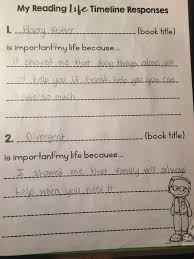 My Reading Life Timeline Responses
1. Harry Potter (book title)
is important my life because...
It showed me that doing things alone will
not help you if friends help you you can
do so much
2. Divergent (book title)
is important my life because...
I showed me that family will always
help when you need it